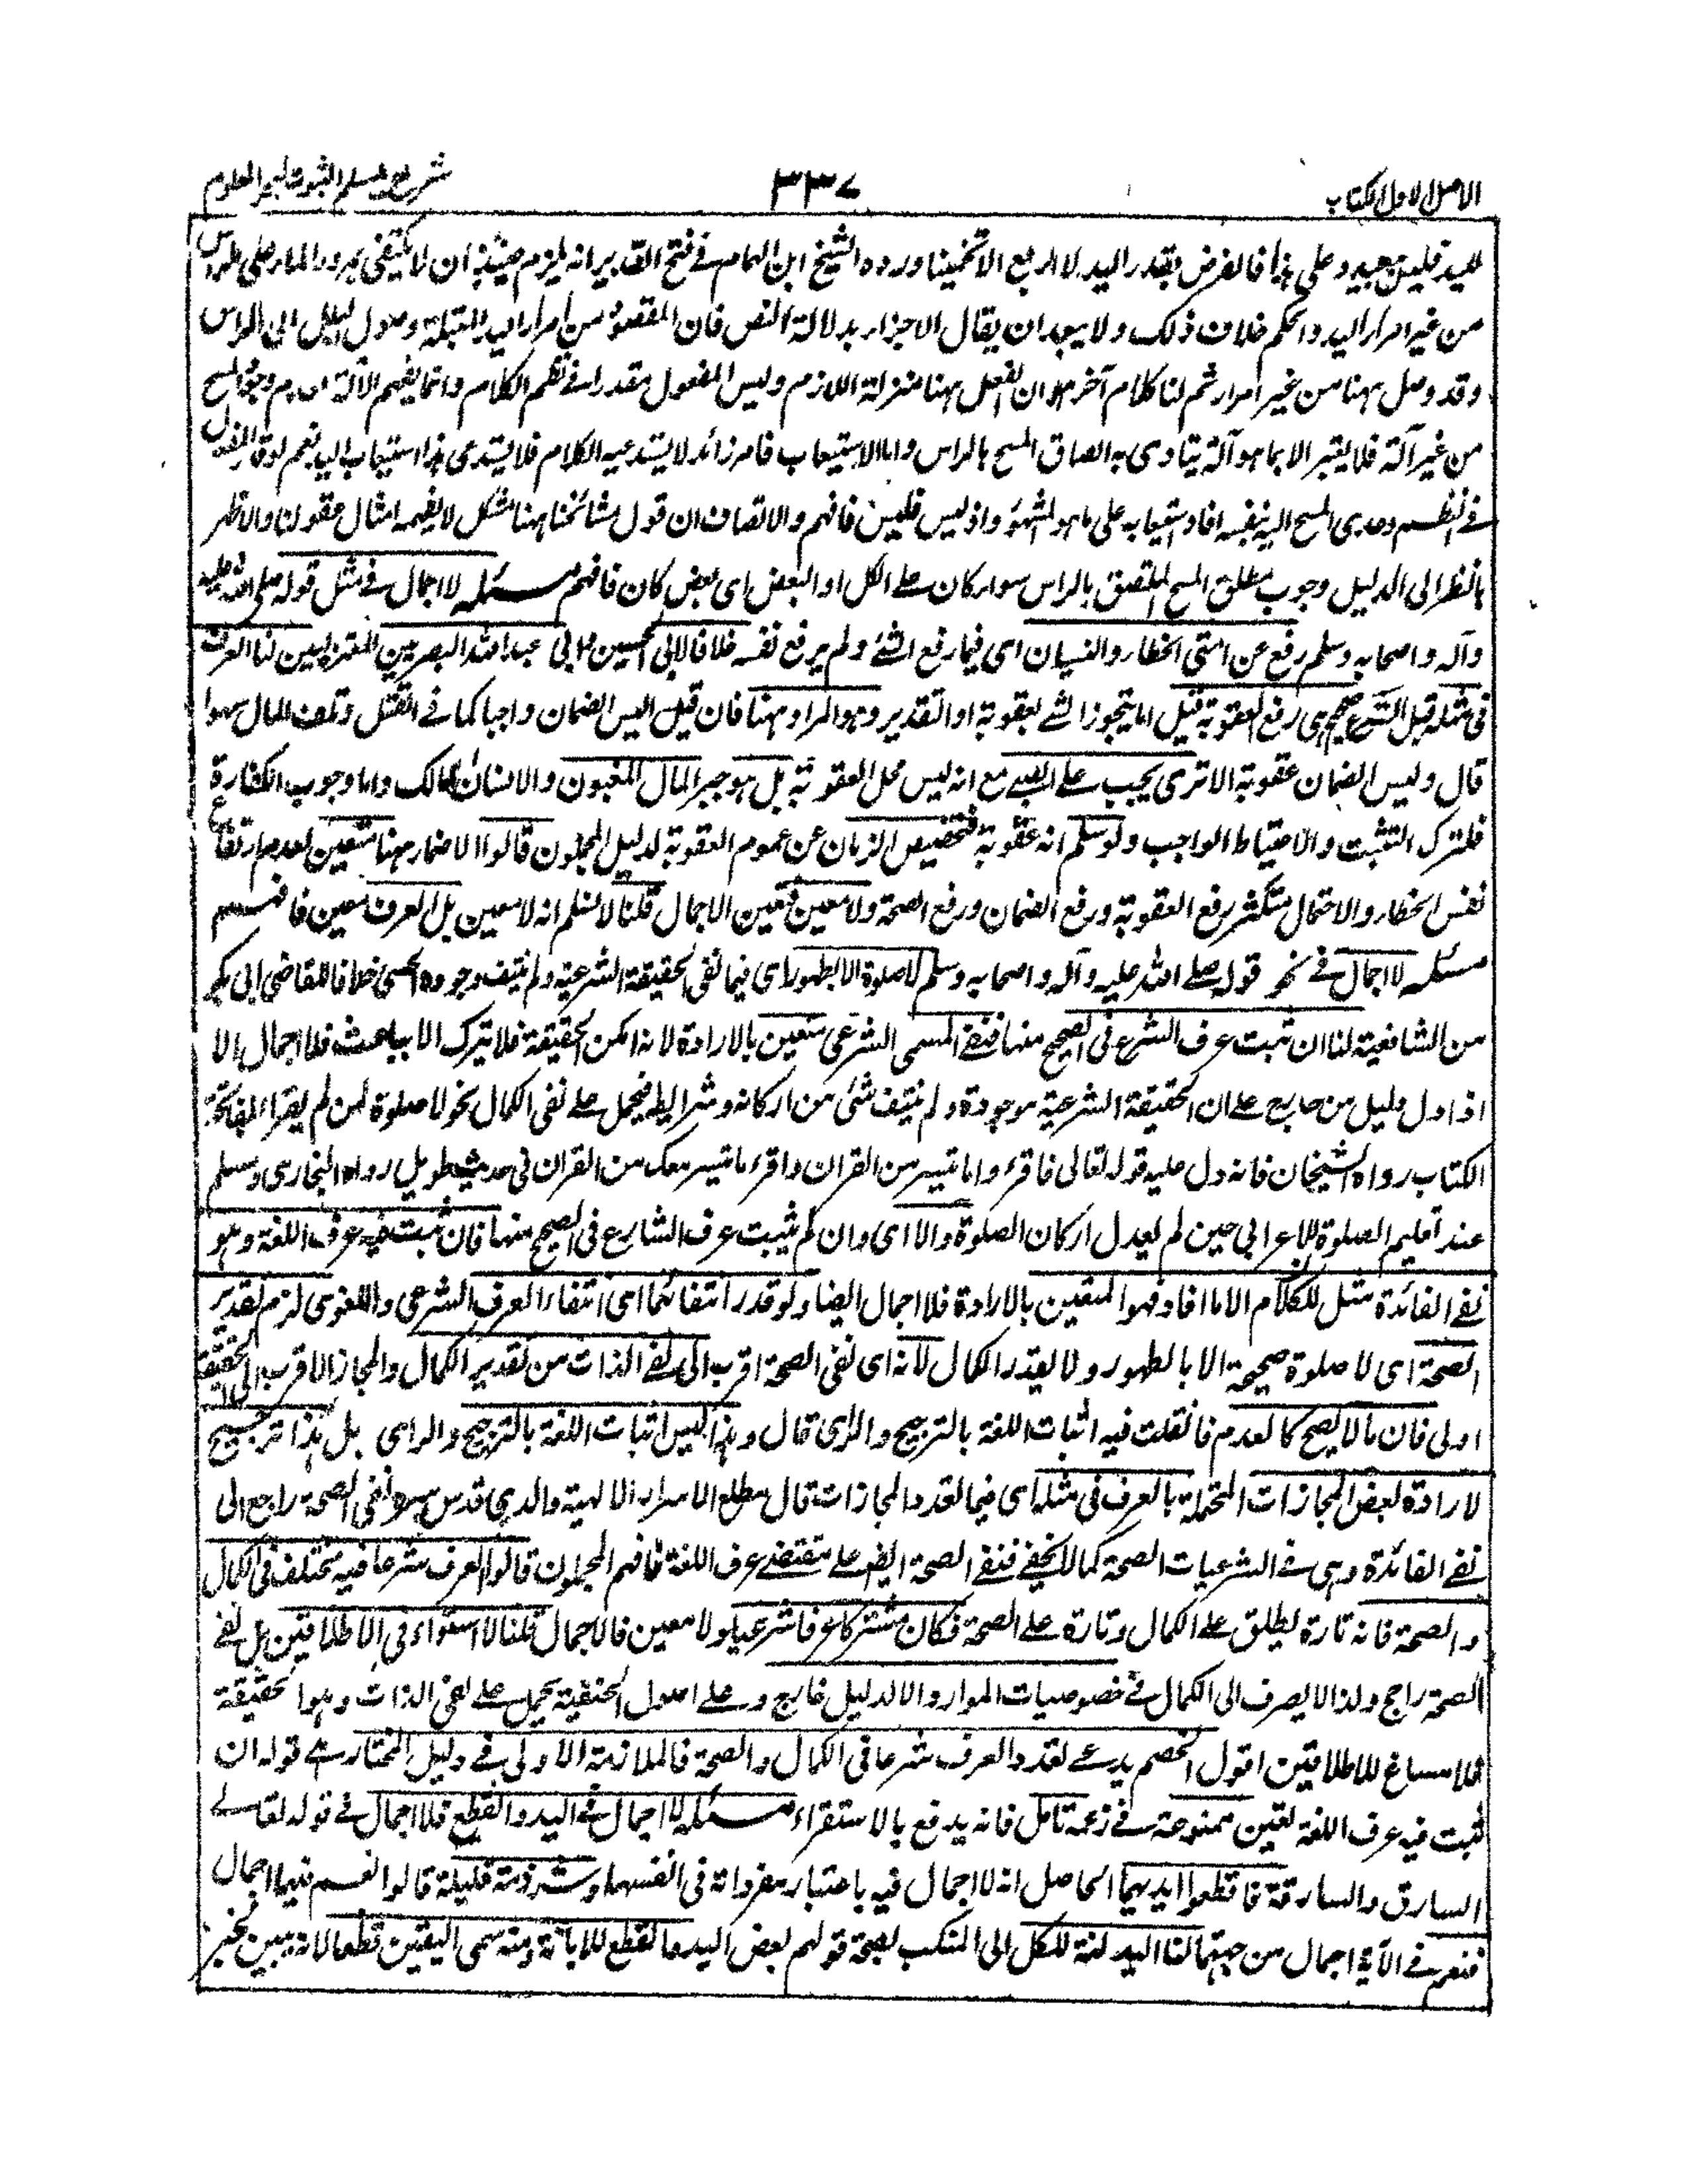 الاصل الاول الكتاب ٣٣٧ شرح مسلم الثبوت لبحر العلوم
لليد فليس ببعيد وعلى هذا فالفرض بقدر اليد لا الربع الا تخمينا ورده الشيخ ابن الهمام فى فتح القدير انه يلزم حينئذ ان لا يكتفى بمرور الماء على الراس
من غير امرار اليد والحكم خلاف ذلك ولا يبعد ان يقال الاجزاء بدلالة النص فان المقصود من امرار اليد المبتلة وصول البلل الى الراس
وقد وصل ههنا من غير امرار ثم لنا كلام آخر هو ان الفعل ههنا منزلة اللازم وليس المفعول مقدرا فى نظم الكلام وانما يفهم الآلة لعدم وجود المسح
من غير آلة فلا يعتبر الا بما هو آلة يتادى به الصاق المسح بالراس واما الاستيعاب فامر زائد لا يستدعيه الكلام فلا يستدعى هذا استيعاب اليد نعم لو قدر المفعول
فى النظم وعدى المسح اليه بنفسه افاد استيعابه على ما هو المشهور واذ ليس فليس فافهم والانصاف ان قول مشائخنا ههنا مشكل لا يفهمه امثال عقولنا والاظهر
بالنظر الى الدليل وجوب مطلق المسح الملتصق بالراس سواء كان على الكل او البعض اى بعض كان فافهم مسئلة لا اجمال فى مثل قوله صلى الله عليه
وآله واصحابه وسلم رفع عن امتى الخطاء والنسيان اى فيما رفع الشئ ولم يرفع نفسه خلافا لابى الحسين وابى عبد الله البصريين المعتزليين لنا العرف
فى مثله قبل الشرع صحيح هى رفع العقوبة قيل اما بتجوز الشئ لعقوبة او التقدير وهو المراد ههنا فان قيل اليس الضمان واجبا كما فى القتل وتلف المال سهوا
قال وليس الضمان عقوبة الا ترى يجب على الصبى مع انه ليس محل العقوبة بل هو جبر المال المغبون والانسان المالك واما وجوب الكفارة
فلترك التثبت والاحتياط الواجب ولو سلم انه عقوبة فتخصيص الزمان عن عموم العقوبة لدليل المجملون قالوا الاضمار ههنا متعين لعدم ارتفاع
نفس الخطاء والاحتمال متكثر رفع العقوبة ورفع الضمان ورفع الصحة ولا معين فتعين الاجمال قلنا لا نسلم انه لا معين بل العرف معين فافهم
مسئلة لا اجمال فى نحو قوله صلى الله عليه وآله واصحابه وسلم لا صلوة الا بطهور اى فيما نفى الحقيقة الشرعية ولم ينتف وجوده الحسى خلافا للقاضى ابى بكر
من الشافعية لنا ان ثبت عرف الشرع فى الصحيح منها فنفى المسمى الشرعى متعين بالارادة لانه امكن الحقيقة فلا يترك الا بباعث فلا اجمال الا
اذا دل دليل من خارج على ان الحقيقة الشرعية موجودة ولم ينتف شئ من اركانه وشرائطه فيحمل على نفى الكمال نحو لا صلوة لمن لم يقرأ بفاتحة
الكتاب رواه الشيخان فانه دل عليه قوله تعالى فاقرءوا ما تيسر من القران واقرء ما تيسر معك من القران فى حديث طويل رواه البخارى ومسلم
عند تعليم الصلوة للاعرابى حين لم يعدل اركان الصلوة والا اى وان لم يثبت عرف الشارع فى الصحيح منها فان ثبت فيه عرف اللغة وهو
نفى الفائدة مثل لا كلام الا ما افاد فهو المتعين بالارادة فلا اجمال ايضا ولو قدر انتفائهما اى انتفاء العرف الشرعى واللغوى لزم تقدير
الصحة اى لا صلوة صحيحة الا بالطهور ولا يقدر الكمال لانه اى نفى الصحة اقرب الى نفى الذات من تقدير الكمال والمجاز الاقرب الى الحقيقة
اولى فان ما لا يصح كالعدم فان قلت فيه اثبات اللغة بالترجيح والراى قال وهذا ليس اثبات اللغة بالترجيح والراى بل هذا ترجيح
لارادة لبعض المجازات المحتملة بالعرف فى مثله اى فيما تعدد المجازات قال مطلع الاسرار الالهية والدى قدس سره نفى الصحة راجع الى
نفى الفائدة وهى فى الشرعيات الصحة كما لا يخفى فنفى الصحة ايضا على مقتضى عرف اللغة فافهم المجملون قالوا العرف شرعا فيه مختلف فى الكمال
والصحة فانه تارة يطلق على الكمال وتارة على الصحة فكان مشتركا عرفا شرعيا ولا معين فالاجمال قلنا لا استواء فى الاطلاقين بل نفى
الصحة راجح ولذا لا يصرف الى الكمال فى خصوصيات الموارد الا لدليل خارج وعلى اصول الحنفية يحمل على نفى الذات وهو الحقيقة
فلا مساغ للاطلاقين اقول الخصم يدعى تعدد العرف شرعا فى الكمال والصحة فالملازمة الاولى فى دليل المختار هى قوله ان
ثبت فيه عرف اللغة تعين ممنوعة فى زعمه تامل فانه يدفع بالاستقراء مسئلة لا اجمال فى اليد والقطع فلا اجمال فى قوله تعالى
السارق والسارقة فاقطعوا ايديهما الحاصل انه لا اجمال فيه باعتبار مفرداته فى انفسها وشرذمة قليلة قالوا نعم فيهما اجمال
فنعم فى الآية اجمال من جهتهما لنا اليد لغة للكل الى المنكب لصحة قولهم بعض اليد والقطع للابانة ومنه سمى اليقين قطعا لانه يبين الخبر